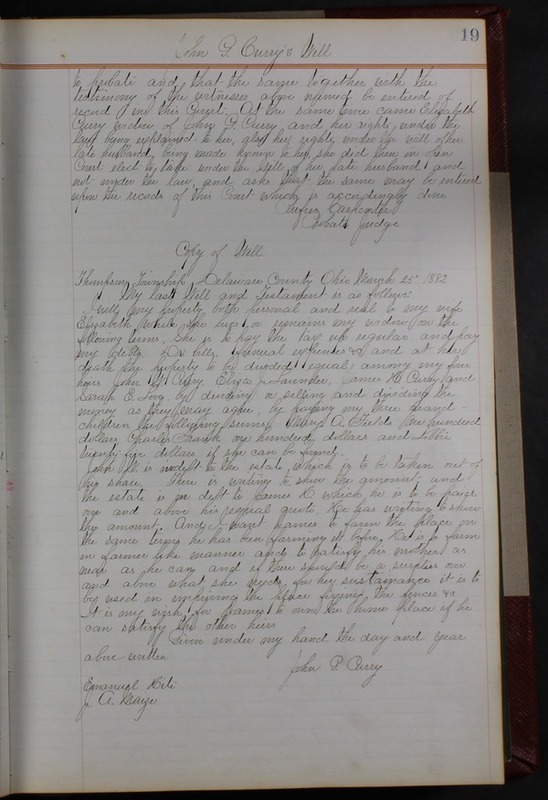 19
John P. Curry's Will
to probate and that the same together with the
testimony of the witnesses above named be entered of
record in this Court. At the same time came Elizabeth
Curry widow of John P. Curry and her rights under the
law being explained to her, also her rights under the will of her
late husband, being made known to her, she did then in open
Court elect to take under the will of her late husband and
not under the law, and asks that the same may be entered
upon the records of this Court which is accordingly done
Rufus Carpenter
Probate Judge
Copy of Will
Thompson Township, Delaware County Ohio March 25 1882
My last Will and Testament is as follows:
I will my property both personal and real to my wife
Elizabeth while she lives or remains my widow on the
following terms. She is to pay the tax up regular and pay
my debts, Dr bills, funeral expenses &c and at her
death the property to be divided equal among my four
heirs John W. Curry, Eliza J. James H Curry and
Sarah E. Long by dividing or selling and dividing the
money as they may agree, by paying my three grand-
children the following sums, Mary A. Fields One hundred
dollars Charles one hundred dollars and Libbie
twenty five dollars if she can be found.
John W. is indebt to the estate, which is to be taken out of
his share. There is writing to show the amount and
the estate is in debt to James H. which he is to be paid
over and above his equal quota. He has writing to show
the amount. And I want James to farm the place on
the same terms he has been farming it before, He is to farm
in farmer like manner and to satisfy his mother as
near as he can and if there should be a surplus over
and above what she needs for her sustainance it is to
be used in improving the place fixing the fences &c
It is my wish for James to own the home place if he
can satisfy the other heirs
Given under my hand the day and year
above written
John P. Curry
Emanuel Hite
A.